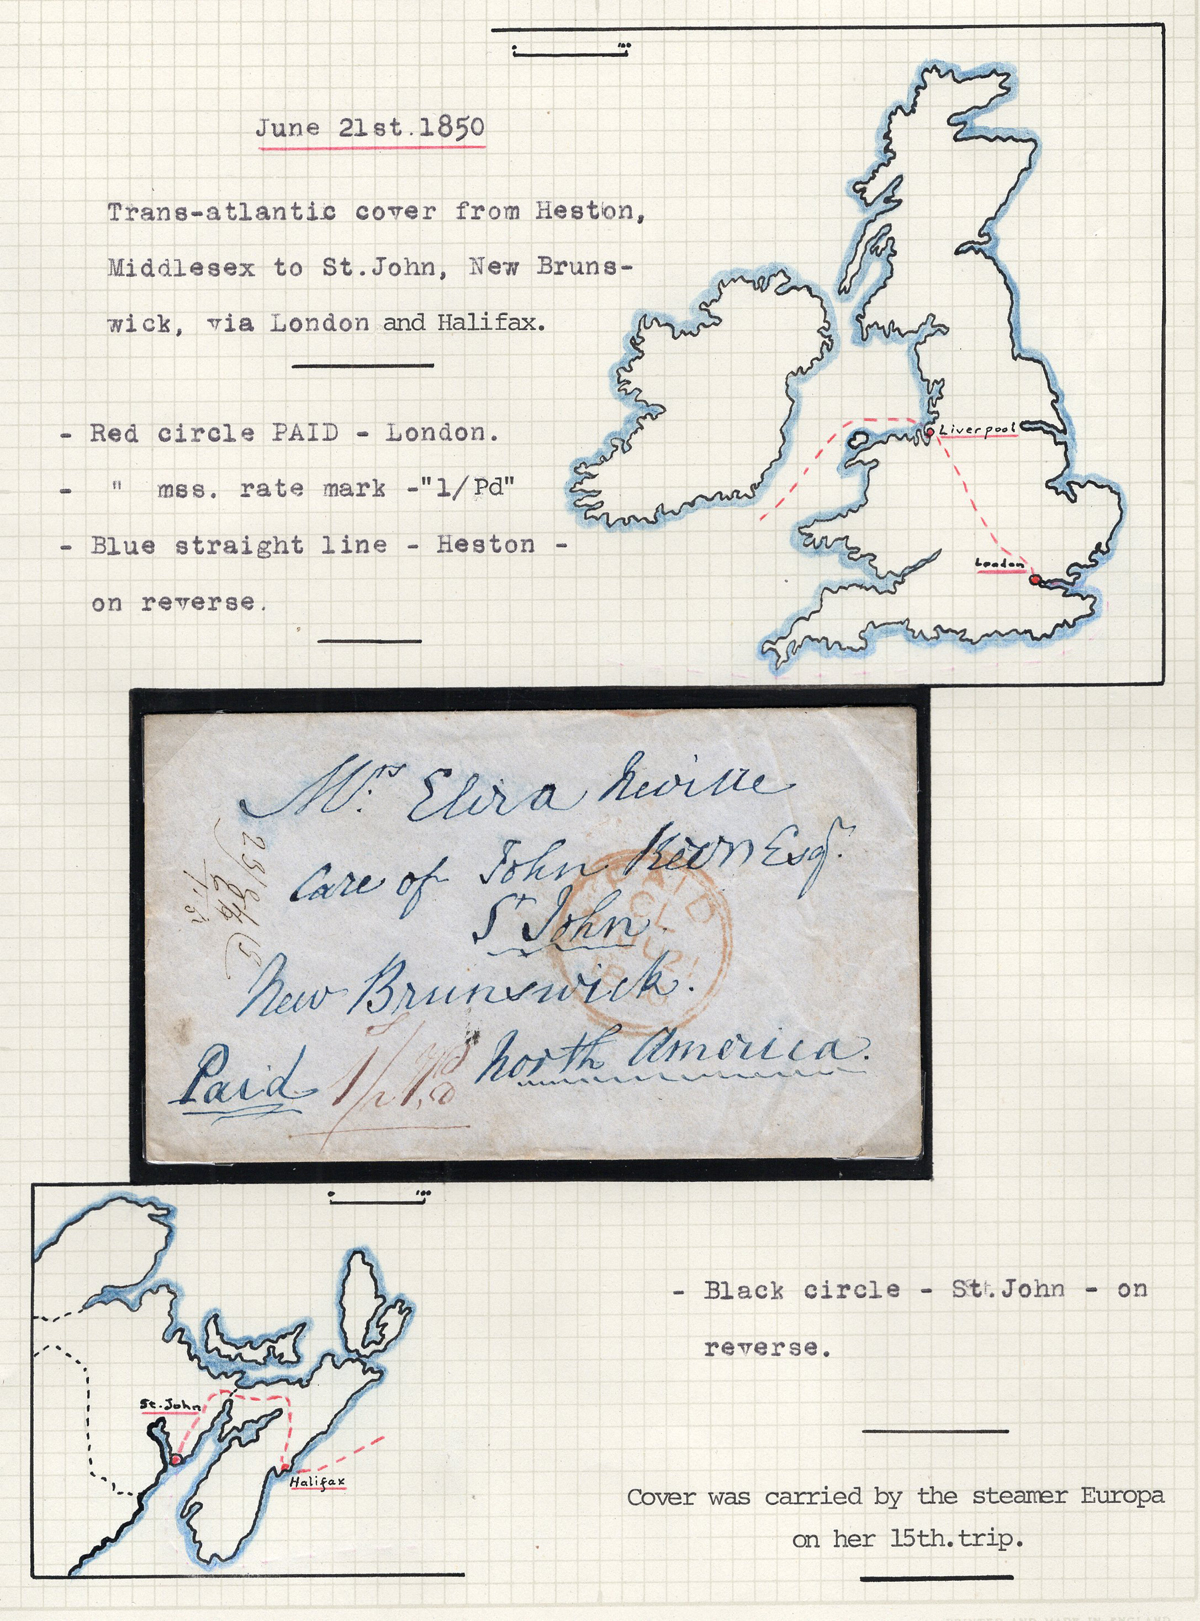 0 100
June 21st.1850
Trans-atlantic cover from Heston,
Middlesex to St.John, New Bruns-
wick, via London and Halifax.
- Red circle PAID - London.
- " mss. rate mark -"1/Pd"
- Blue straight line - Heston -
on reverse.
Liverpool
London
Mrs Eliza Neville
Care of John Keen Esqr.
St John.
New Brunswick.
Paid 1/- Pd North America.
PAID
CL
JU21
0 100
St.John
Halifax
- Black circle - St.John - on
reverse.
Cover was carried by the steamer Europa
on her 15th.trip.